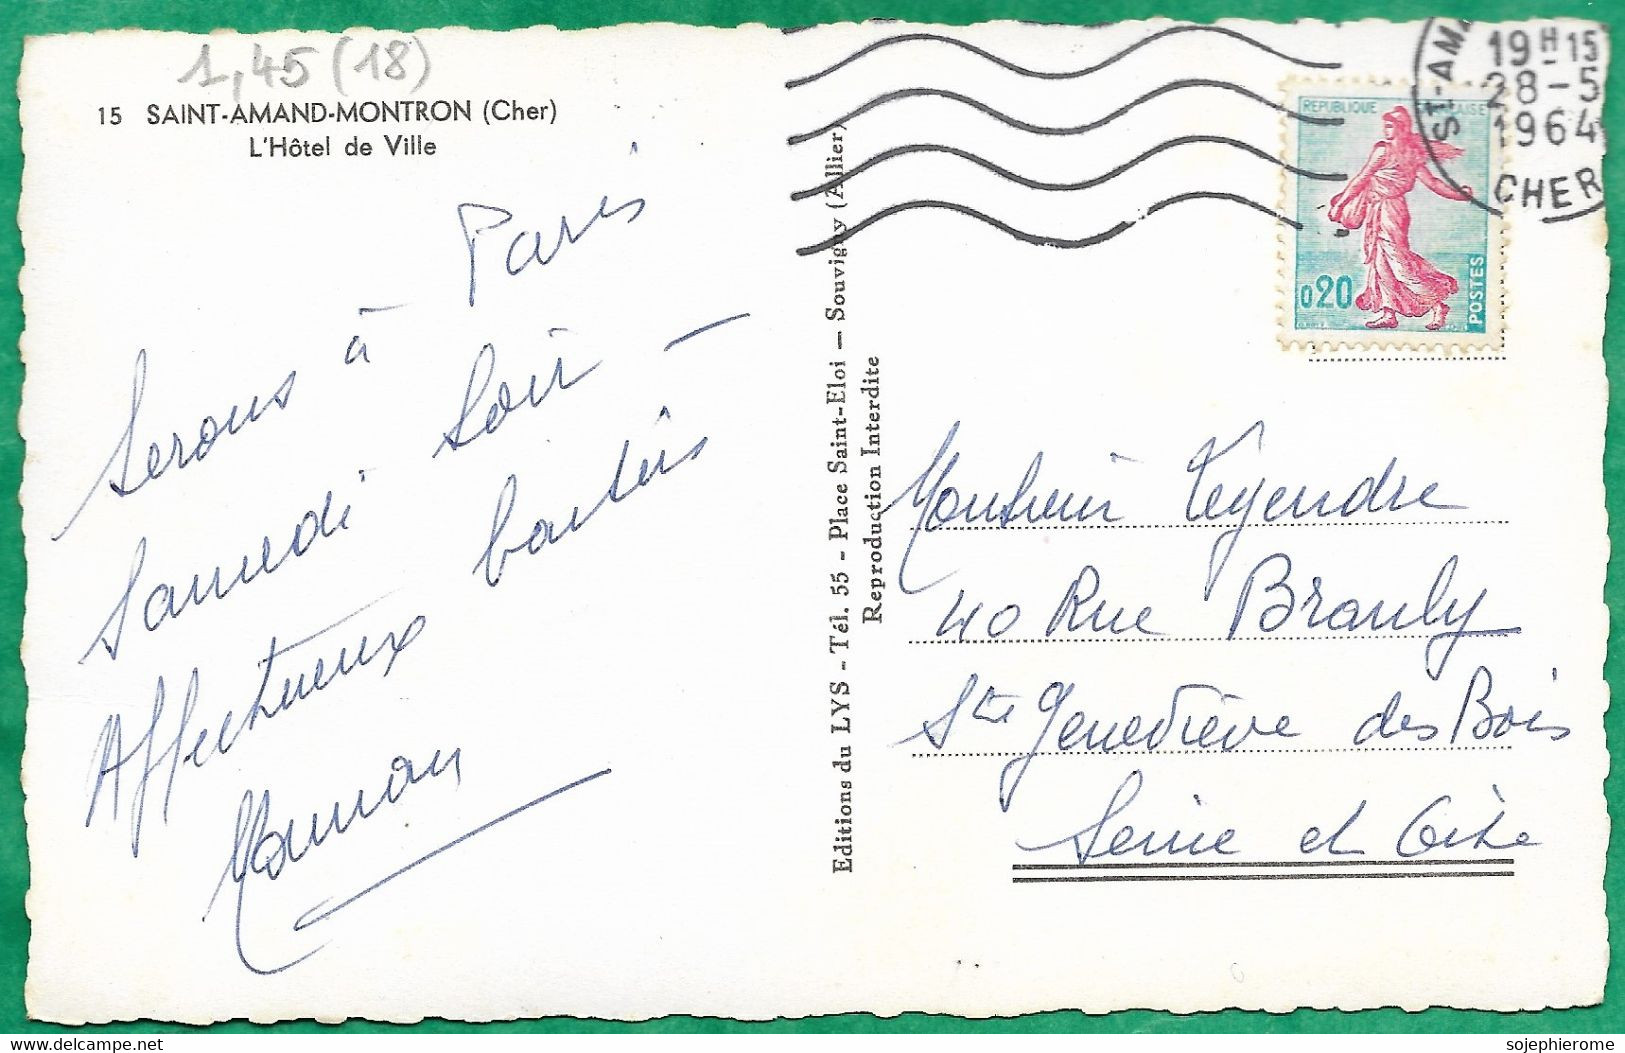 1,45 (18)
15 SAINT-AMAND-MONTRON (Cher)
L'Hôtel de Ville
Serons à Paris
Samedi Soir —
Affectueux baisers
Maman
Editions du LYS - Tél. 55 - Place Saint-Eloi — Souvigny (Allier)
Reproduction Interdite
19 H 15
28-5
1964
ST-AM
CHER
REPUBLIQUE AISE
0,20
POSTES
Monsieur Legendre
40 Rue Branly
Ste Geneviève des Bois
Seine et Oise
delcampe.net
sojephierome